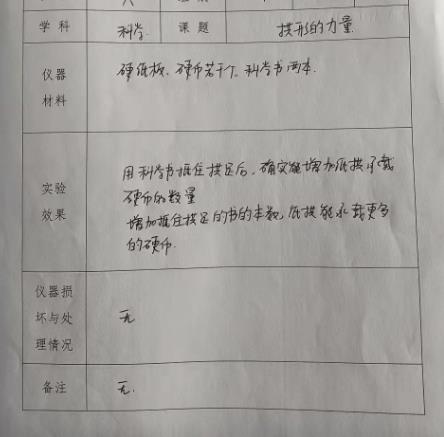 六
学科 科学 课题 拱形的力量
仪器
材料
硬纸板、硬币若干个、科学书两本.
实验
效果
用科学书抵住拱足后,确实能增加纸拱承载
硬币的数量
增加抵住拱足的书的本数,纸拱能承载更多
的硬币.
仪器损
坏与处
理情况
无
备注
无.